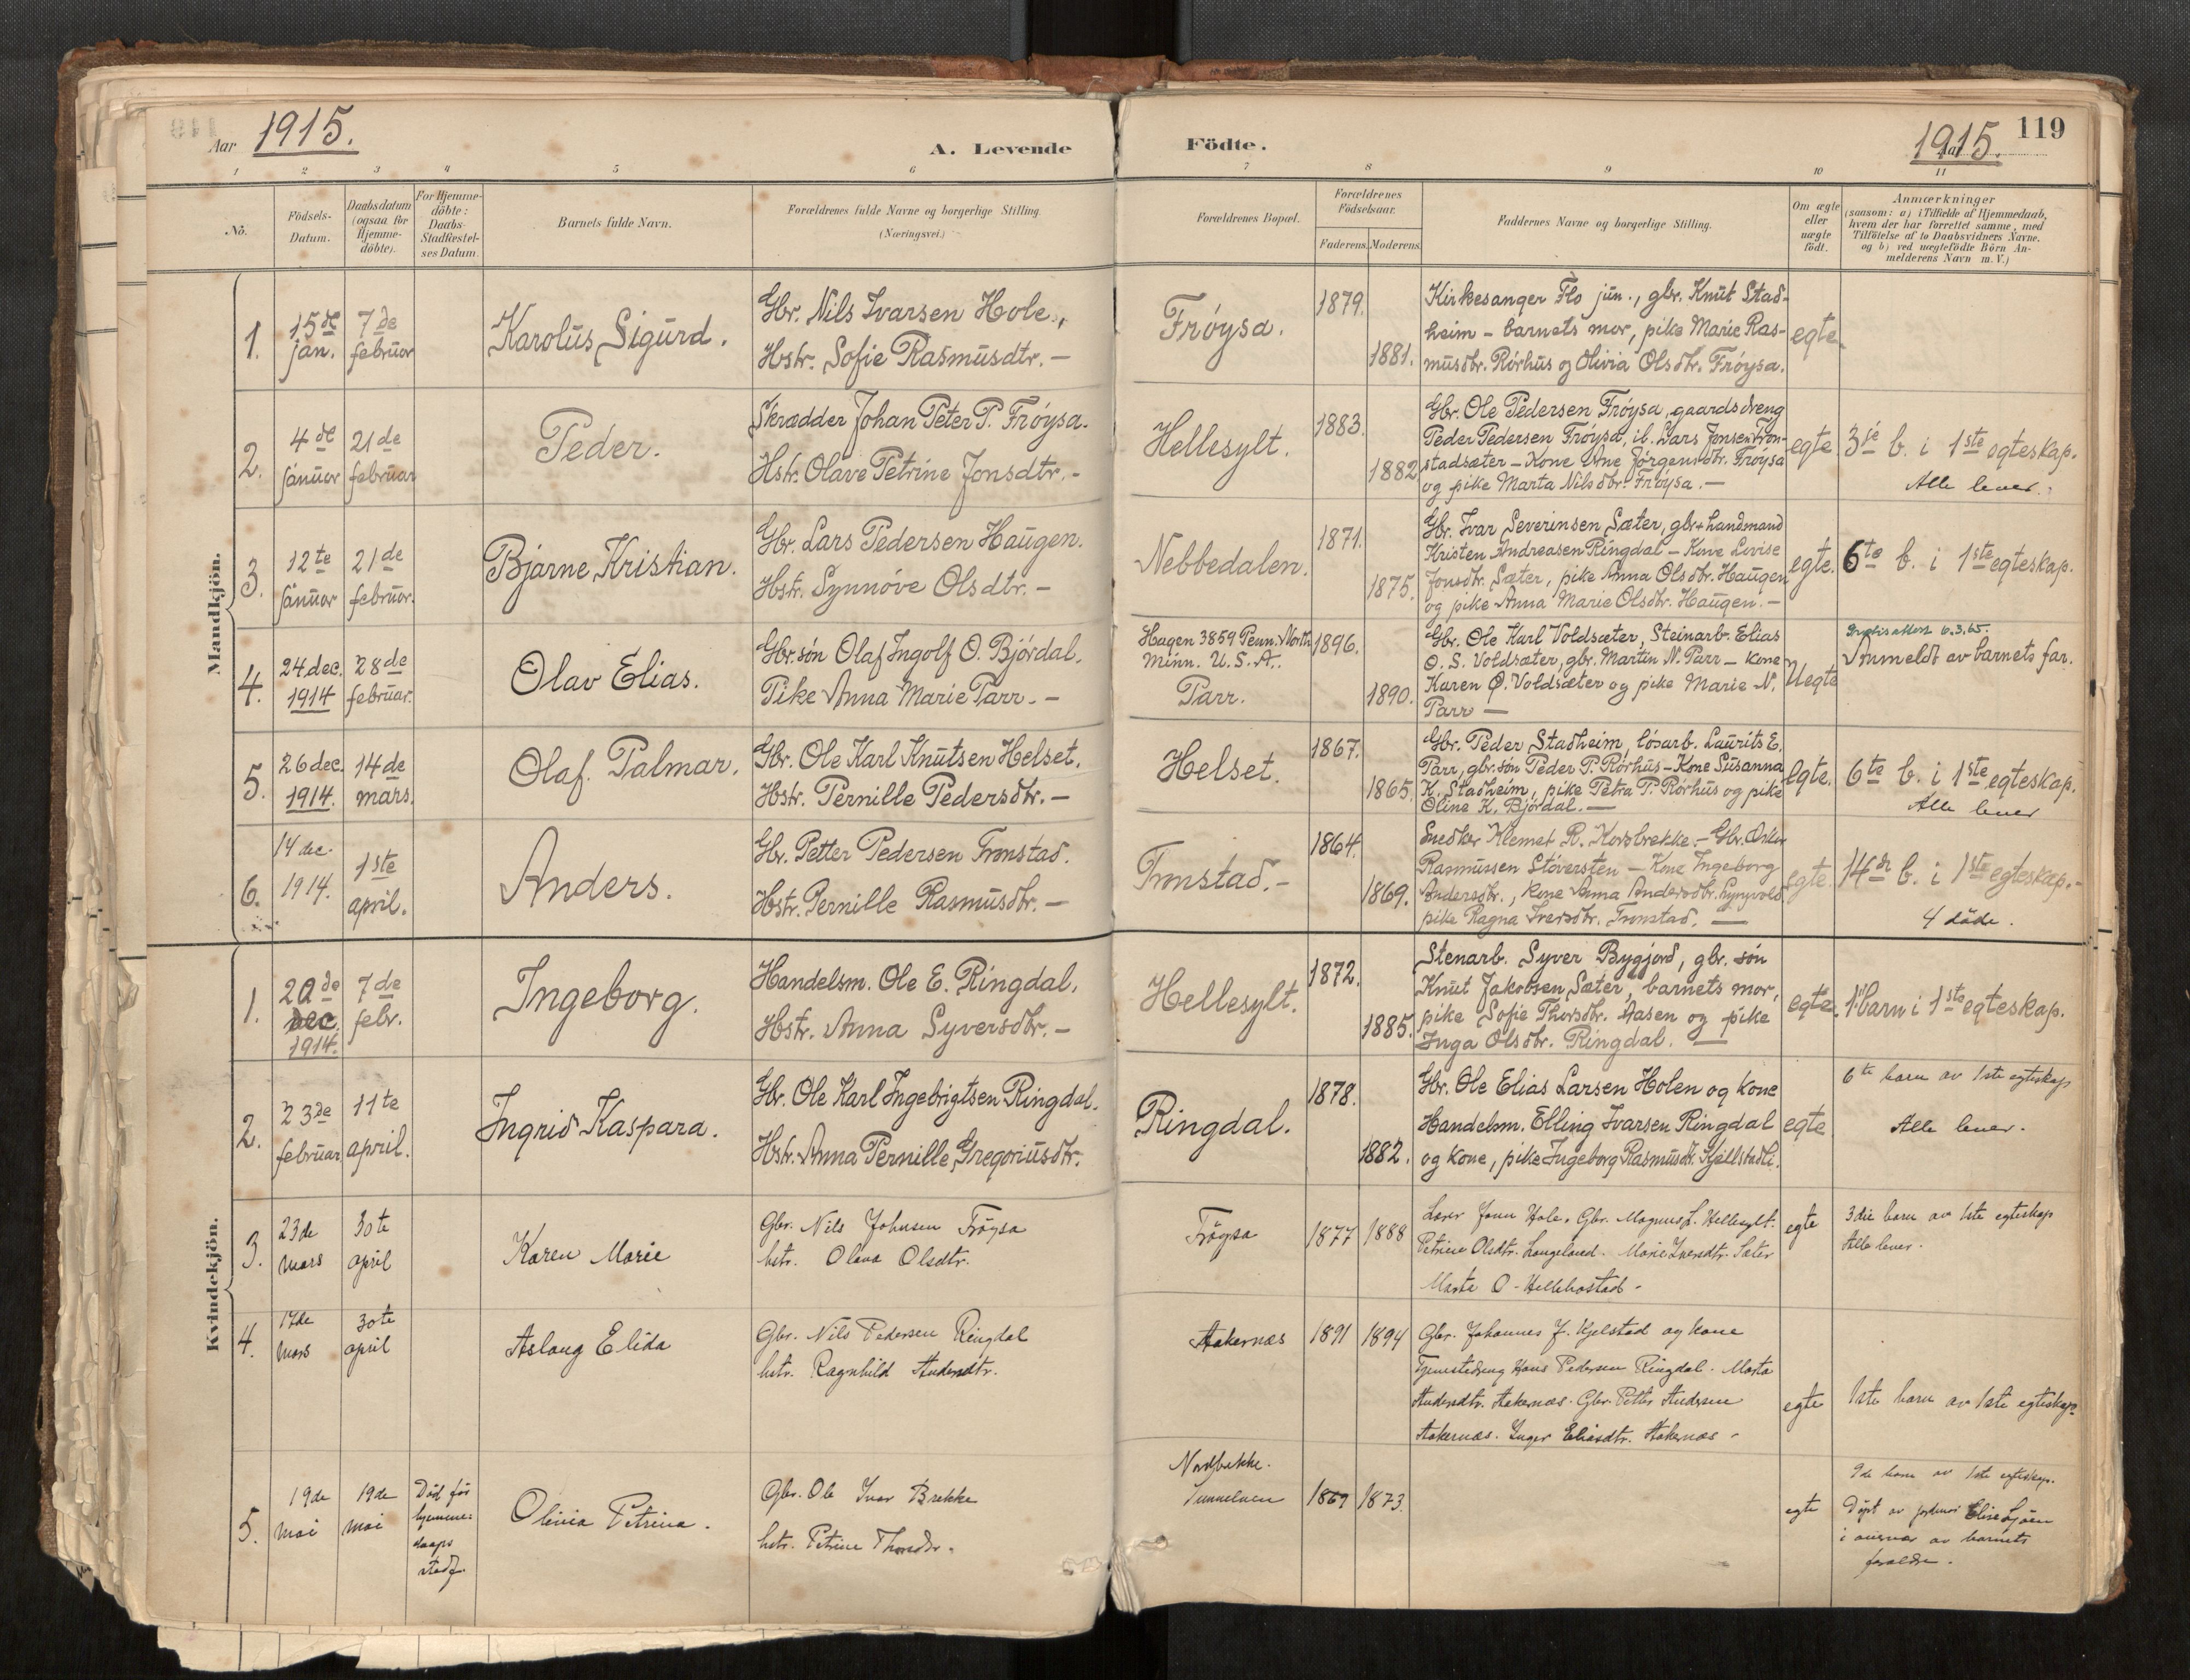 Aar 1915.
A. Levende
Födte.
1915.
Aar
119
1 2 3 4 5 6 7 8 9 10 11
Nö.
Födsels-
Datum.
Daabsdatum
(ogsaa for
Hjemme-
döbte).
For Hjemme-
döbte:
Daabs-
Stadfæstel-
ses Datum.
Barnets fulde Navn.
Forældrenes fulde Navne og borgerlige Stilling
(Næringsvei.)
Forældrenes Bopæl.
Forældrenes
Födselsaar.
Faderens.
Moderens.
Faddernes Navne og borgerlige Stilling.
Om ægte
eller
uægte
födt.
Anmærkninger
(saasom: a) i Tilfælde af Hjemmedaab,
hvem der har forrettet samme, med
Tilföielse af to Daabsvidners Navne.
og b) ved uægtefödte Börn An-
melderens Navn m. V.)
Mandkjön.
1.
15de
jan.
7de
februar
Karolus Sigurd.
Gbr. Nils Ivarsen Hole.,
Hstr. Sofie Rasmusdtr. —
Frøysa.
1879.
1881.
Kirkesanger Flo jun., gbr. Knut Stad-
heim – barnets mor, pike Marie Ras-
musdtr. Rørhus og Olivia Olsdtr. Frøysa.
egte.
2.
4de
januar
21de
februar
Peder.
Skrædder Johan Peter P. Frøysa.
Hstr. Olave Petrine Jonsdtr. -
Hellesylt.
1883.
1882
Gbr. Ole Pedersen Frøysa, gaardsdreng
Peder Pedersen Frøysa, ib. Lars Jonsen Tron-
stadsæter – Kone Ane Jørgensdtr. Frøysa
og pike Marta Nilsdtr. Frøysa. —
egte
3je b. i 1ste egteskap.
Alle lever.
3.
12te
januar
21de
februar.
Bjarne Kristian.
Gbr. Lars Pedersen Haugen.
Hstr. Synnøve Olsdtr. -
Nebbedalen.
1871.
1875.
Gbr. Ivar Severinsen Sæter, gbr + landmand
Kristen Andreasen Ringdal – Kone Lovise
Jonsdtr. Sæter, pike Anna Olsdtr. Haugen
og pike Anna Marie Olsdtr. Haugen. —
egte.
6te b. i 1ste egteskap.
4.
24 dec.
1914
28de
februar.
Olav Elias.
Gbr. søn Olaf Ingolf O. Bjørdal.
Pike Anna Marie Tarr. -
Hagen 3859 Penn. North
Minn. U. S. A..
Tarr.
1896.
1890.
Gbr. Ole Karl Voldsæter, Steinarb. Elias
O. S. Voldsæter, gbr. Martin N. Tarr – kone
Karen O. Voldsæter og pike Marie N.
Tarr —
Uegte
6.3.65.
Inmeldt av barnets far.
5.
26 dec.
1914.
14de
mars.
Olaf. Palmar.
Gbr. Ole Karl Knutsen Helset.
Hstr. Pernille Pedersdtr. —
Helset.
1867.
1865.
Gbr. Peder Stadheim, løsarb. Laurits E.
Tarr, gbr. søn Peder P. Rørhus – Kone Susanna
K. Stadheim, pike Petra P. Rørhus og pike
Oline K. Bjørdal. —
Egte.
6te b. i 1ste egteskap.
Alle lever
6.
14 dec.
1914.
1ste
april.
Anders.
Gbr. Petter Pedersen Tronstad.
Hstr. Pernille Rasmusdtr. —
Tronstad. -
1864.
1869.
Snedker Klemet R. Korsbrekke – Gbr. Oskar
Rasmussen Støversten – Kone Ingeborg
Andersdtr., kone Anna Andersdtr.
pike Ragna Iversdtr. Tronstad. —
egte.
14de b. i 1ste egteskap. -
4 døde.
Kvindekjön.
1.
20de
dec.
1914.
7de
febr.
Ingeborg.
Handelsm. Ole E. Ringdal,
Hstr. Anna Syversdtr. -
Hellesylt.
1872.
1885.
Stenarb. Syver Bygjord, gbr. søn
Knut Jakobsen Sæter, barnets mor,
pike Sofie Thorsdtr. Aasen og pike
Inga Olsdtr. Ringdal. —
egte.
1ste barn i 1ste egteskap.
2.
23de
februar
11te
april.
Ingrid Kaspara.
Gbr. Ole Karl Ingebrigtsen Ringdal.
Hstr. Anna Pernille Gregoriusdtr.
Ringdal.
1878.
1882.
Gbr. Ole Elias Larsen Holen og kone
Handelsm. Elling Ivarsen Ringdal
og kone, pike Ingeborg Rasmusdt. Kjellstadli.
egte
6te barn av 1ste egteskap
Alle lever.
3.
23de
mars
30te
april
Karen Marie
Gbr. Nils Johnsen Frøysa
hstr. Olava Olsdtr.
Frøysa
1877
1888
Lærer Jonn Hole. Gbr. Magnus L. Hellesylt.
Petrine Olsdtr. Langeland. Marie Iversdtr. Sæter
Marte O. Hellebostad -
egte
3die barn av 1ste egteskap
Alle lever.
4.
17de
mars
30te
april
Aslaug Elida
Gbr. Nils Pedersen Ringdal
hstr. Ragnhild Andersdtr.
Aakernæs
1891
1894
Gbr. Johannes J. Kjelstad og kone
Tjenestedreng Hans Pedersen Ringdal. Marta
Andersdtr. Aakernæs. Gbr. Petter Andersen
Aakernæs. Inger Eliasdtr. Aakernæs -
egte
1ste barn av 1ste egteskap.
5.
19de
mai
19de
mai
Død før
hjemme-
daaps
stadf.
Olivia Petrina.
Gbr. Ole Ivar Brekke
hstr. Petrine Thorsdtr.
Nordbrekke.
Sunnelven
1869
1873.
egte
9de barn av 1ste egteskap.
Døpt av jordmor Elise Sjøen
i nærvær av barnets
forældre.